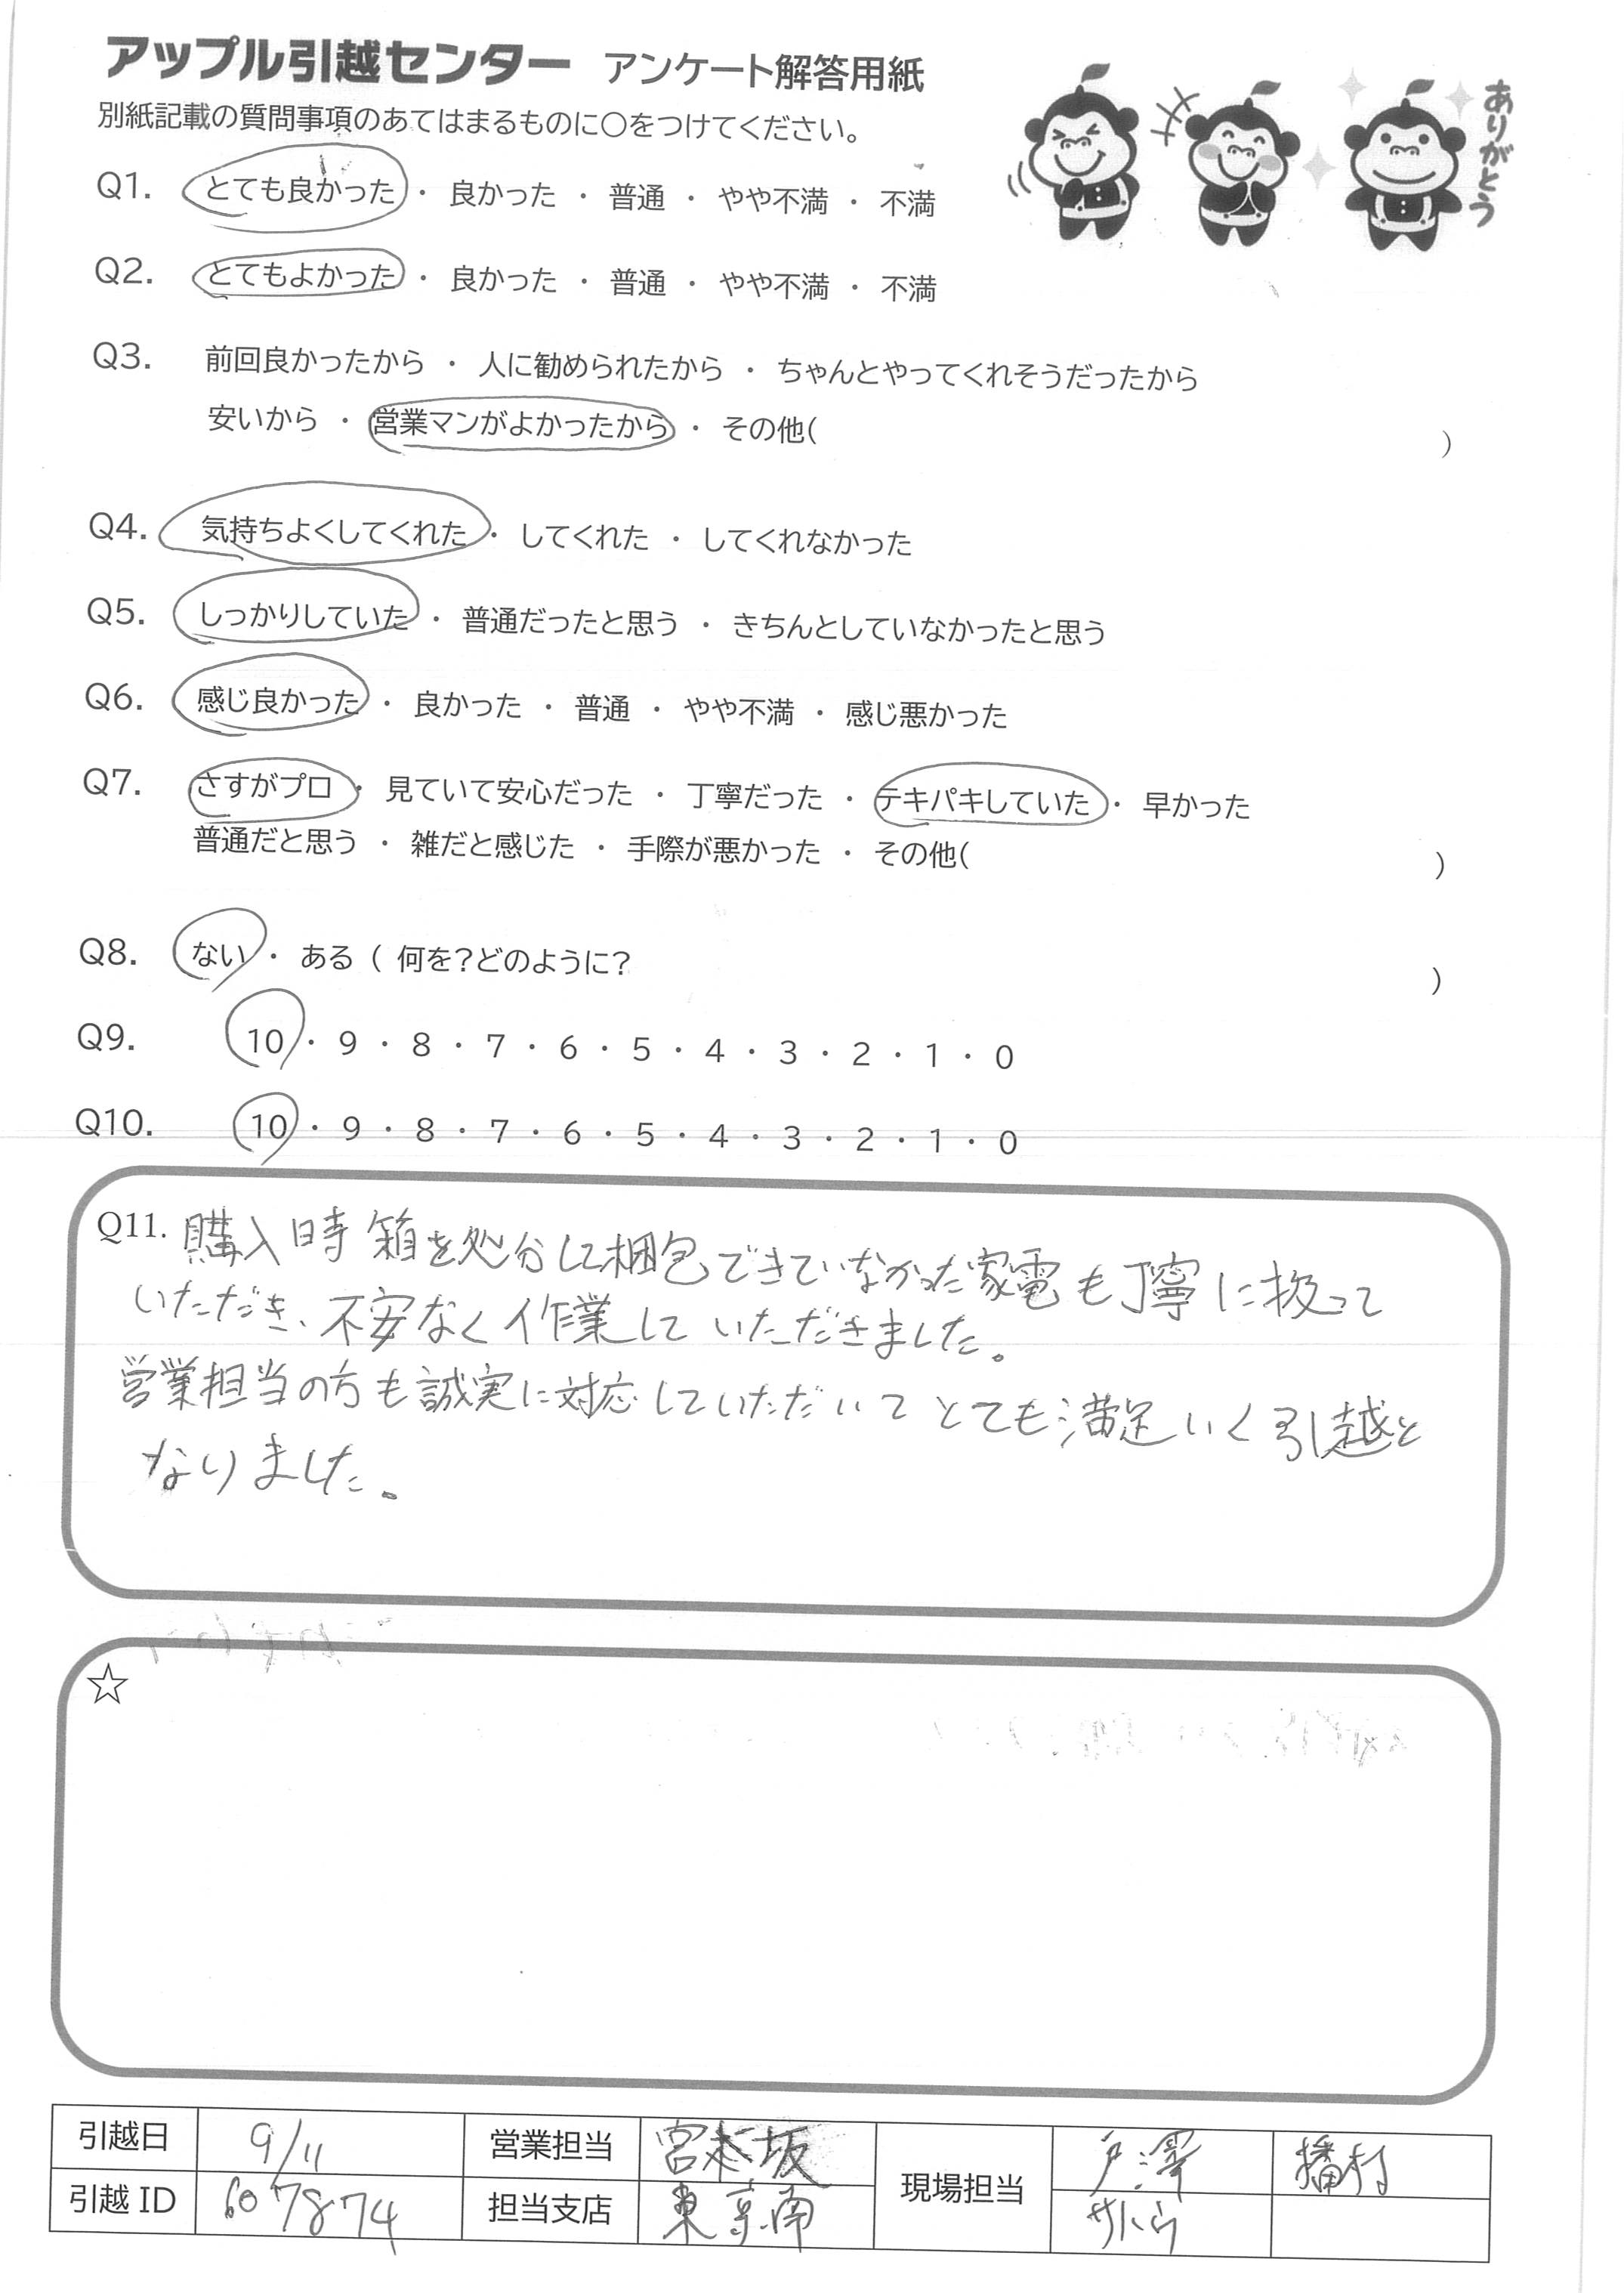 アップル引越センター アンケート解答用紙
別紙記載の質問事項のあてはまるものに○をつけてください。
ありがとう
Q1. とても良かった ・ 良かった ・ 普通 ・ やや不満 ・ 不満
Q2. とてもよかった ・ 良かった ・ 普通 ・ やや不満 ・ 不満
Q3. 前回良かったから ・ 人に勧められたから ・ ちゃんとやってくれそうだったから
安いから ・ 営業マンがよかったから ・ その他( )
Q4. 気持ちよくしてくれた ・ してくれた ・ してくれなかった
Q5. しっかりしていた ・ 普通だったと思う ・ きちんとしていなかったと思う
Q6. 感じ良かった ・ 良かった ・ 普通 ・ やや不満 ・ 感じ悪かった
Q7. さすがプロ ・ 見ていて安心だった ・ 丁寧だった ・ テキパキしていた ・ 早かった
普通だと思う ・ 雑だと感じた ・ 手際が悪かった ・ その他( )
Q8. ない ・ ある ( 何を?どのように? )
Q9. 10 ・ 9 ・ 8 ・ 7 ・ 6 ・ 5 ・ 4 ・ 3 ・ 2 ・ 1 ・ 0
Q10. 10 ・ 9 ・ 8 ・ 7 ・ 6 ・ 5 ・ 4 ・ 3 ・ 2 ・ 1 ・ 0
Q11. 購入時箱を処分して梱包できていなかった家電も丁寧に扱って
いただき、不安なく作業していただきました。
営業担当の方も誠実に対応していただいてとても満足いく引越と
なりました。
☆
引越日 9/11 営業担当 現場担当 戸澤 播村
引越 ID 607874 担当支店 東京南 サトウ